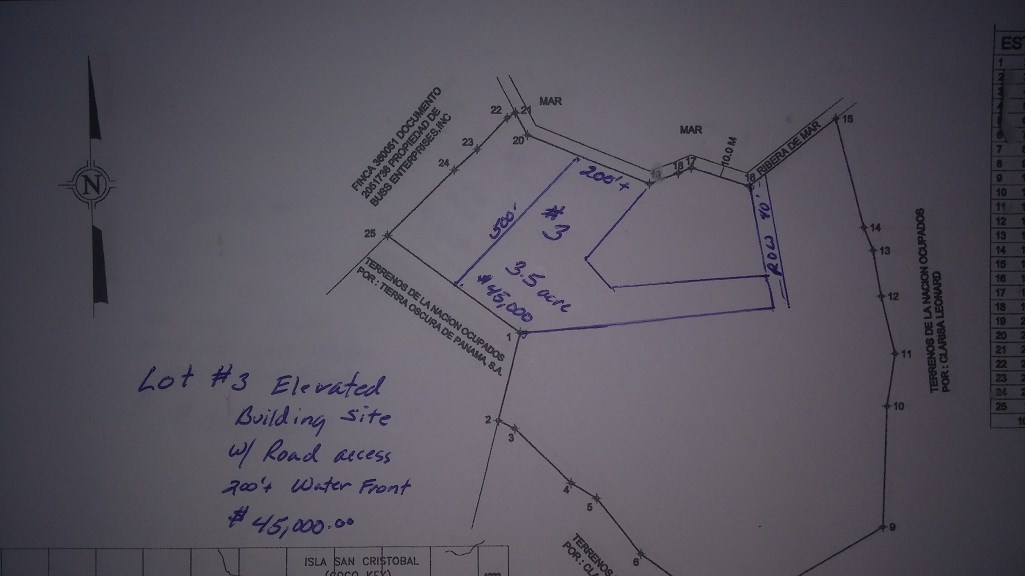 EST
1
2
7
8
9
10
11
12
13
14
15
16
17
18
19
20
21
22
23
24
25
N
FINCA 360051 DOCUMENTO
2051736 PROPIEDAD DE
BUSS ENTERPRISES,INC
22
21
MAR
20
23
24
25
MAR
18
17
10.0 M
16
RIBERA DE MAR
15
200'+
500'
#3
3.5 acre
$45,000
ROW 40'
14
13
12
11
10
9
TERRENOS DE LA NACION OCUPADOS
POR : CLARISA LEONARD
TERRENOS DE LA NACION OCUPADOS
POR : TIERRA OSCURA DE PANAMA, S.A.
1
2
3
4
5
6
Lot #3 Elevated
Building Site
w/ Road access
200'+ Water Front
$45,000.00
TERRENOS
POR : CLA
ISLA SAN CRISTOBAL
(COCO KEY)